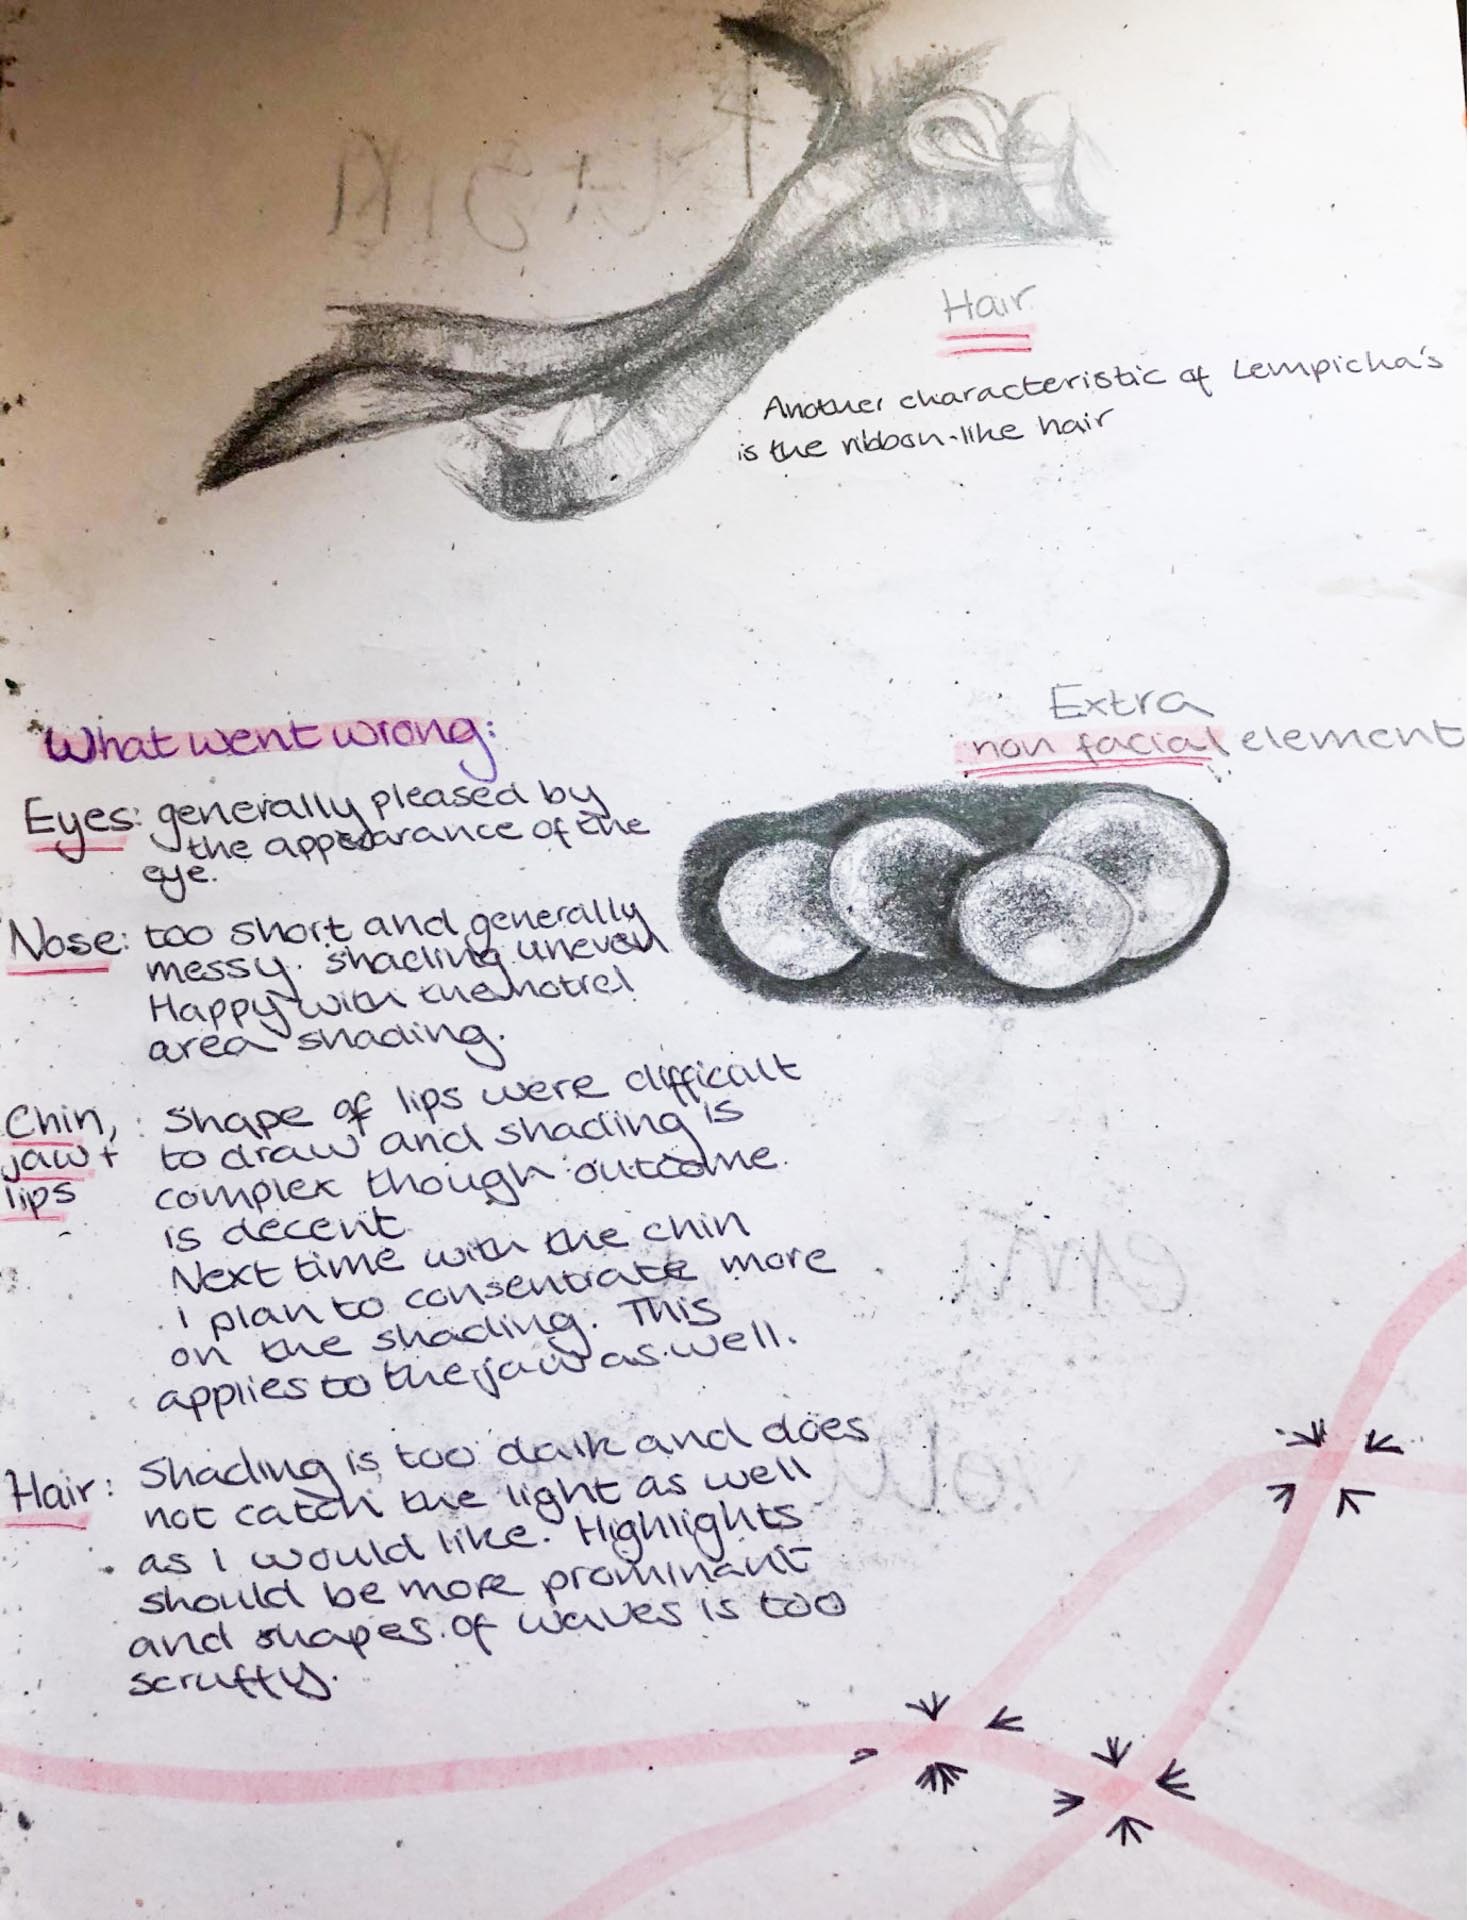 Hair
Another characteristic of Lempicha's
is the ribbon-like hair
Extra
non facial element
What went wrong:
Eyes: generally pleased by
the appearance of the
eye.
Nose: too short and generally
messy. shading uneven
Happy with the notrel
area shading.
Chin, : Shape of lips were difficalt
jaw + to draw and shading is
lips complex though outcome.
is decent
Next time with the chin
I plan to consentrate more
on the shading. This
applies to the jaw as well.
Hair: Shading is too dark and does
not catch the light as well
as I would like. Highlights
should be more prominant
and shapes of waves is too
scruffy.